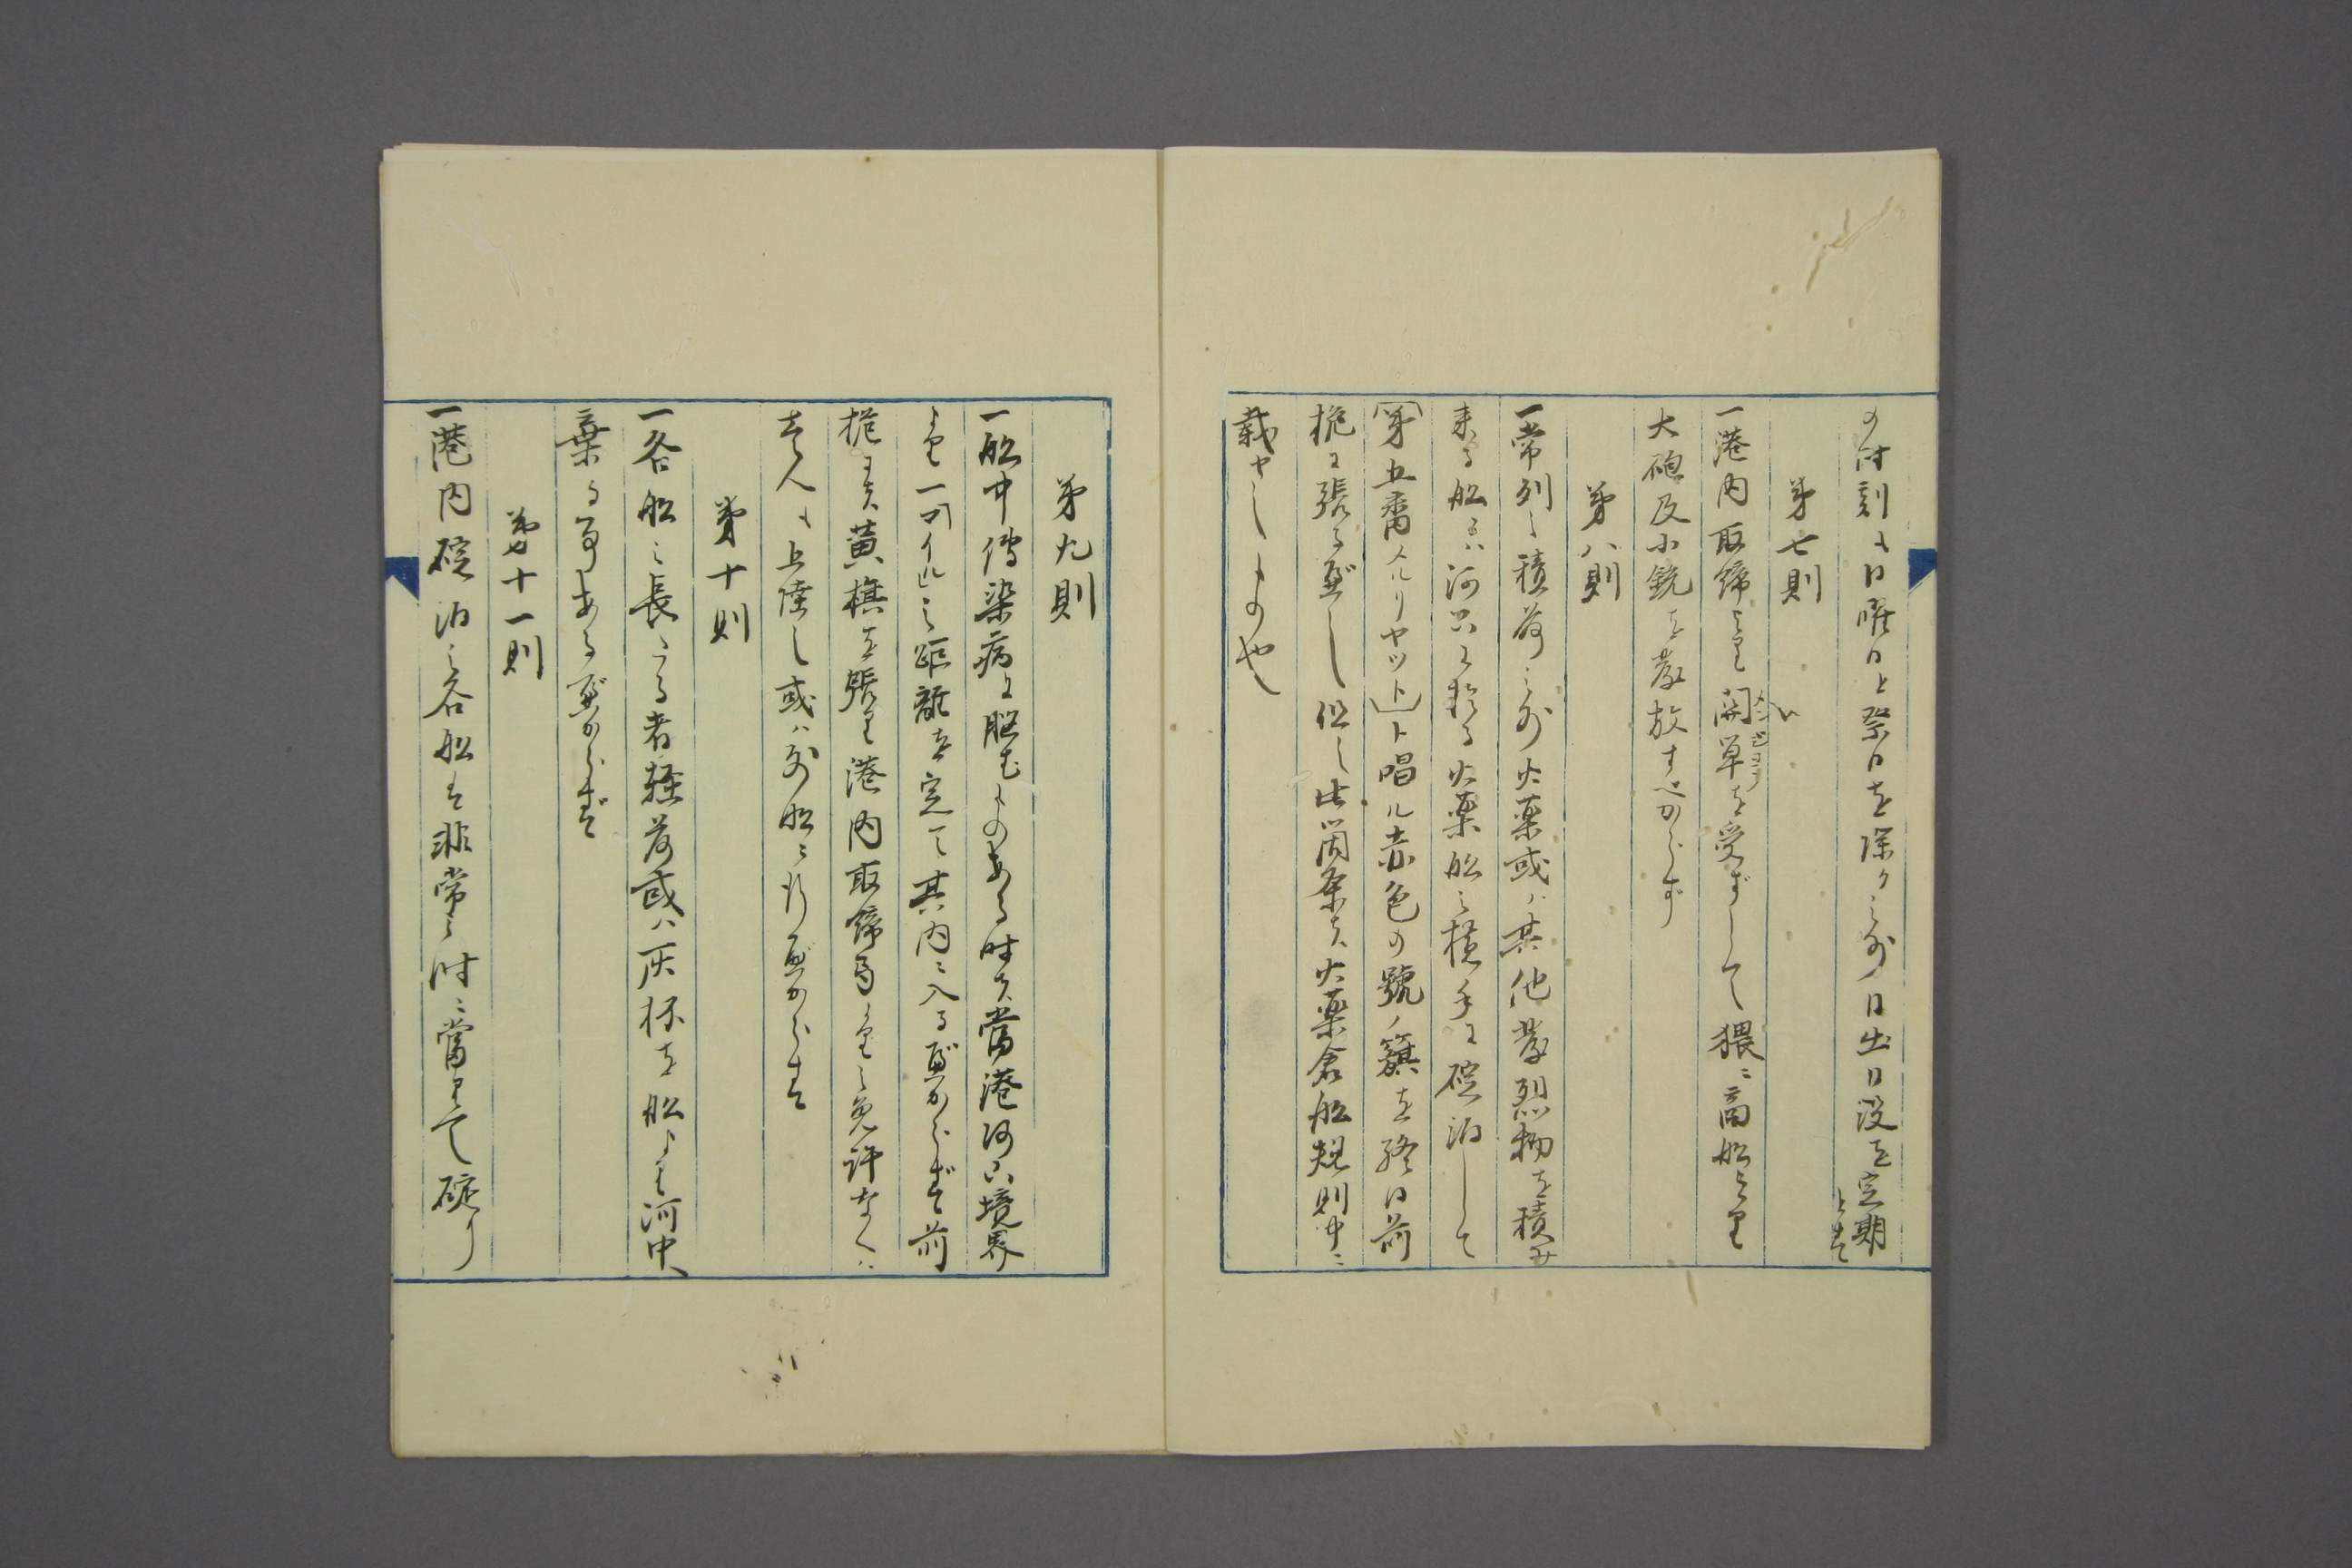 の時刻は日曜日と祭日を除クノ外日出日没を定期
とす
第七則
一港内取締より開草を受ずして猥ニ商船より
メンジヨウ
大砲及小銃を発放すべからず
第八則
一常列之積荷之外火薬或ハ其他発烈物を積み
来る船ハ河口に於る火薬船之横手に碇泊して
「第五番メルリヤット」ト唱ル赤色の號ノ籏を終日前
桅に張る可し但し此箇条ハ火薬倉船規則中ニ
載せしものや
第九則
一船中傳染病に脳むものある時ハ當港河口境界
より一里之距離を定て其内ニ入る可からず前
桅には黄旗を張り港内取締局より之免許なくハ
壱人も上陸し或ハ外船ニ行可からす
第十則
一各船之長たる者軽荷或ハ灰抔を船より河中
棄る事ある可からず
第十一則
一港内碇泊之各船は非常之時ニ當りて碇り